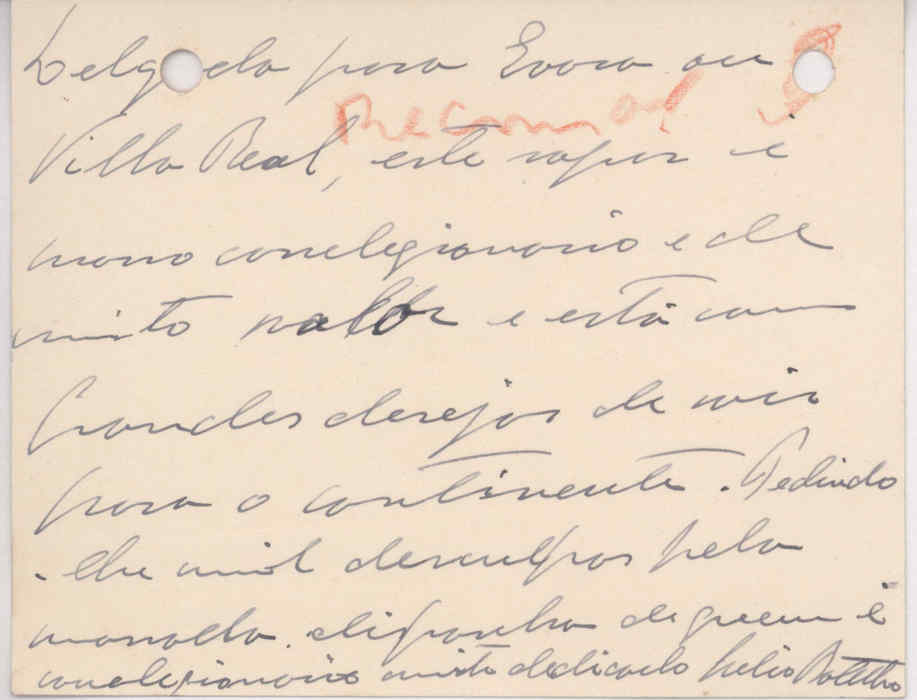 Delgada para Evora ou
Recomend
Villa Real, este rapas é
nosso correlegionario e de
muito valor e está com
grandes desejos de vir
para o continente. Pedindo
-lhe mil desculpas pela
massada. disponha de quem é
correlegionario muito dedicado Julio Botelho